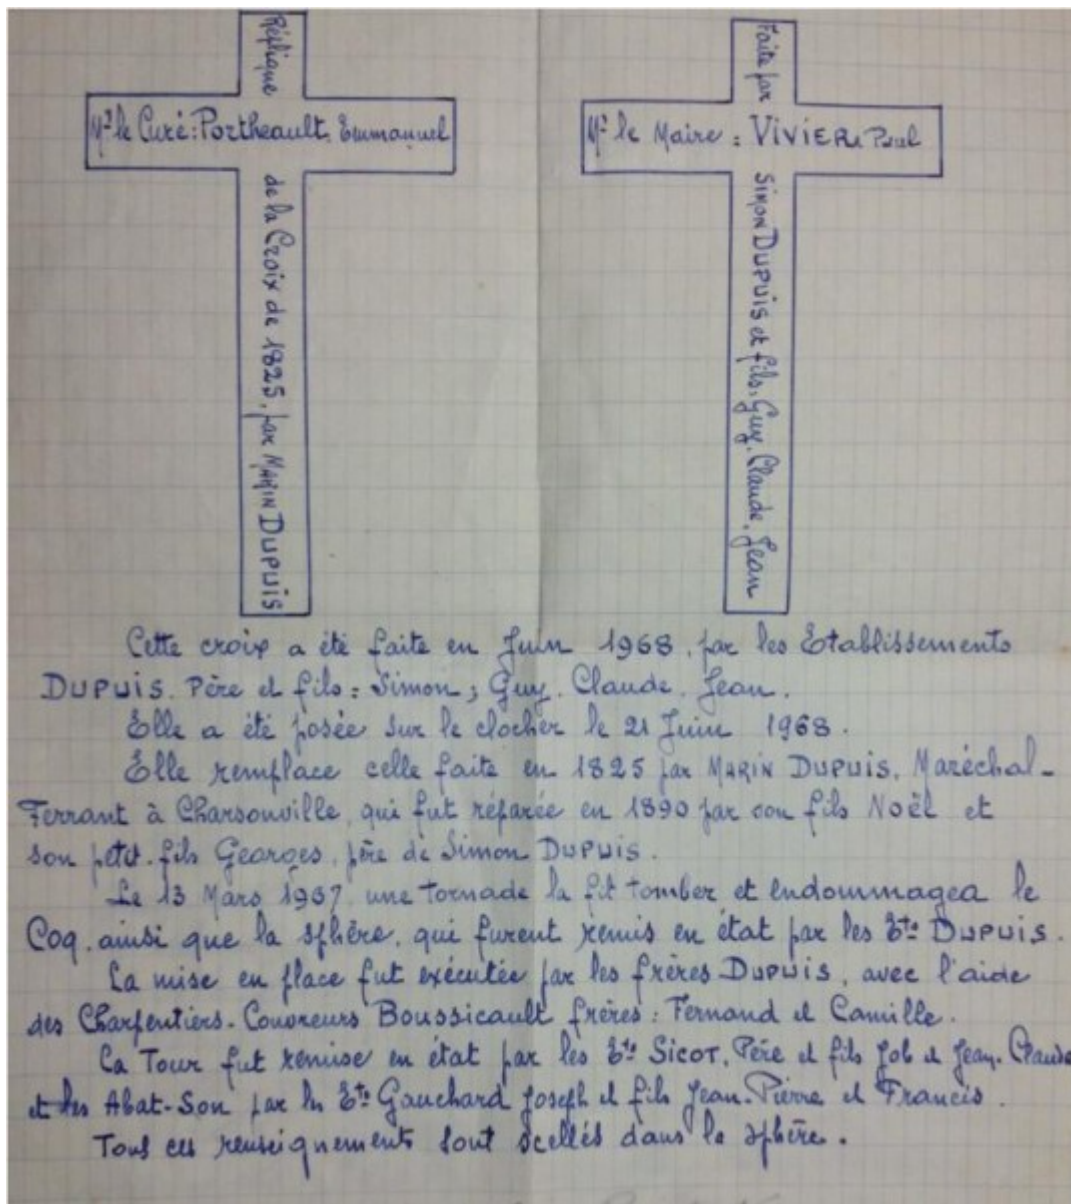 Réplique de la Croix de 1825, par MARIN DUPUIS
Mr le Curé : Portheault, Emmanuel
Faite par SIMON DUPUIS et fils, Guy, Claude, Jean
Mr le Maire : VIVIER, Paul
Cette croix a été faite en Juin 1968, par les Etablissements
DUPUIS. Père et fils : Simon ; Guy, Claude, Jean.
Elle a été posée sur le clocher le 21 Juin 1968.
Elle remplace celle faite en 1825 par MARIN DUPUIS, Maréchal-
Ferrant à Charsonville, qui fut réparée en 1890 par son fils Noël et
son petit-fils Georges, père de Simon DUPUIS.
Le 13 Mars 1967, une tornade la fit tomber et endommagea le
Coq, ainsi que la sphère, qui furent remis en état par les Ets DUPUIS.
La mise en place fut exécutée par les frères DUPUIS, avec l'aide
des Charpentiers-Couvreurs Boussicault frères : Fernand et Camille.
La Tour fut remise en état par les Ets SICOT, Père et fils Job et Jean-Claude
et les Abat-Son par les Ets Gauchard Joseph et fils Jean-Pierre et Francis.
Tous ces renseignements sont scellés dans la sphère.